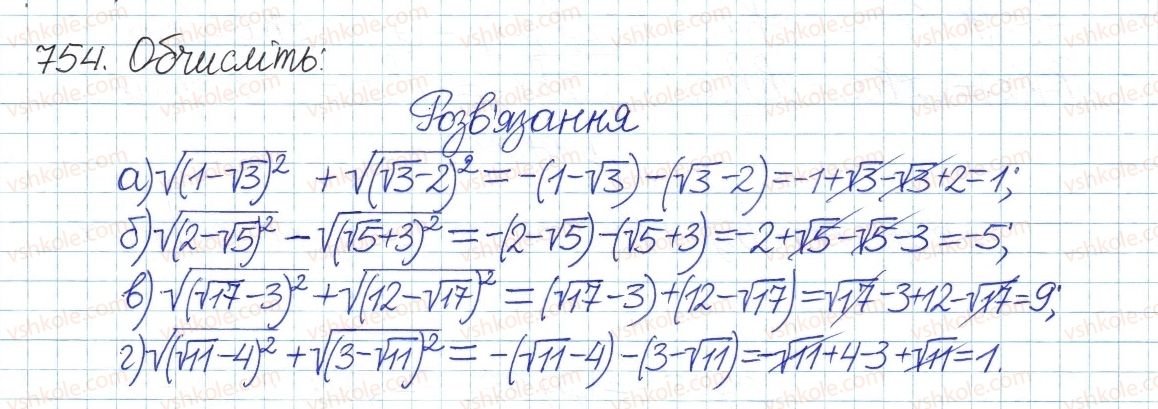 754. Обчисліть:
Розв'язання
а) √(1-√3)² + √(√3-2)² = -(1-√3)-(√3-2)=-1+√3-√3+2=1;
б) √(2-√5)² - √(√5+3)² = -(2-√5)-(√5+3)=-2+√5-√5-3=-5;
в) √(√17-3)² + √(12-√17)² = (√17-3)+(12-√17)=√17-3+12-√17=9;
г) √(√11-4)² + √(3-√11)² = -(√11-4)-(3-√11)=-√11+4-3+√11=1.
vshkole.com